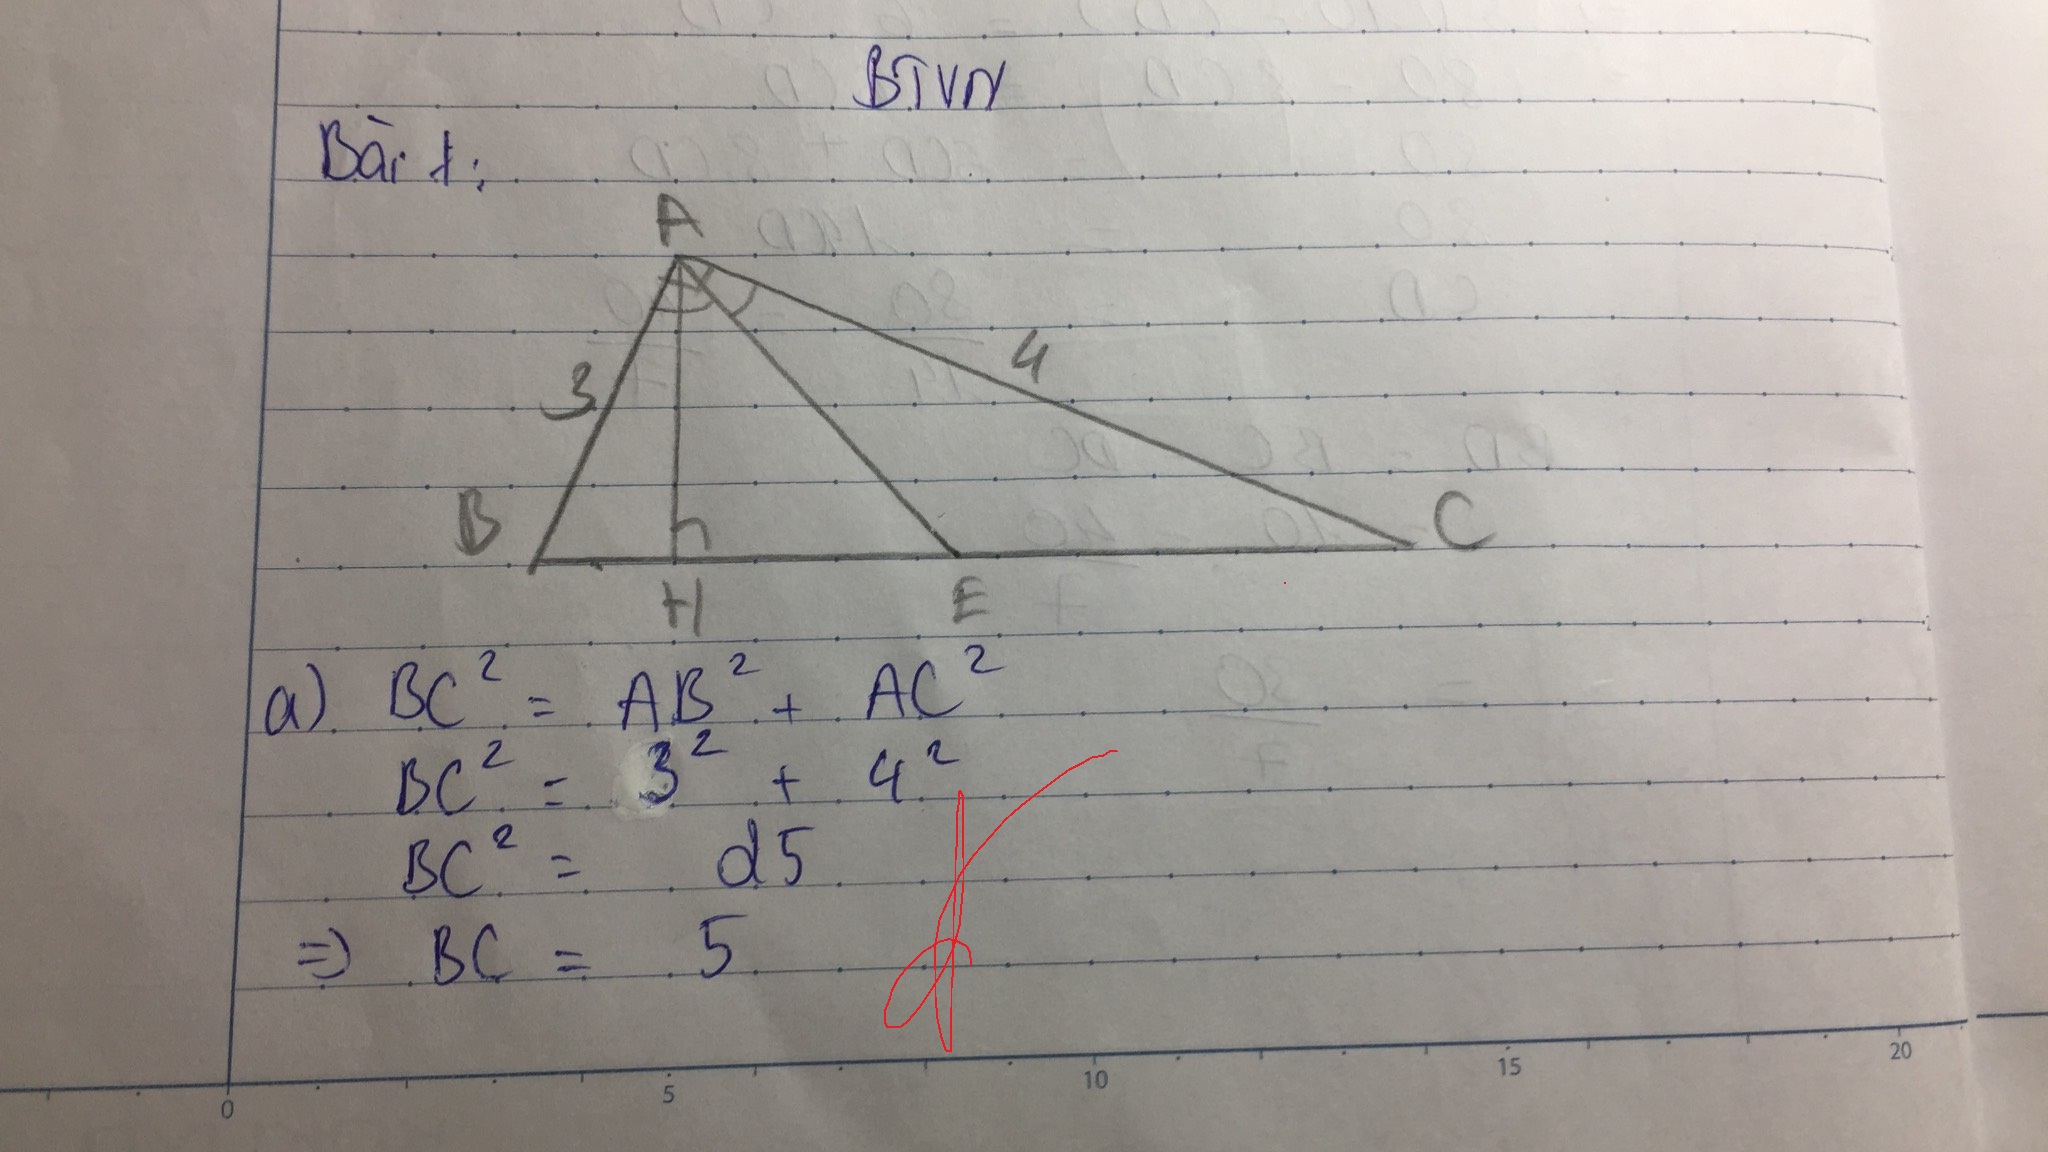 BTVN
Bài 1:
A
3
4
B
C
H
E
a) BC² = AB² + AC²
BC² = 3² + 4²
BC² = 25
=> BC = 5
0 5 10 15 20